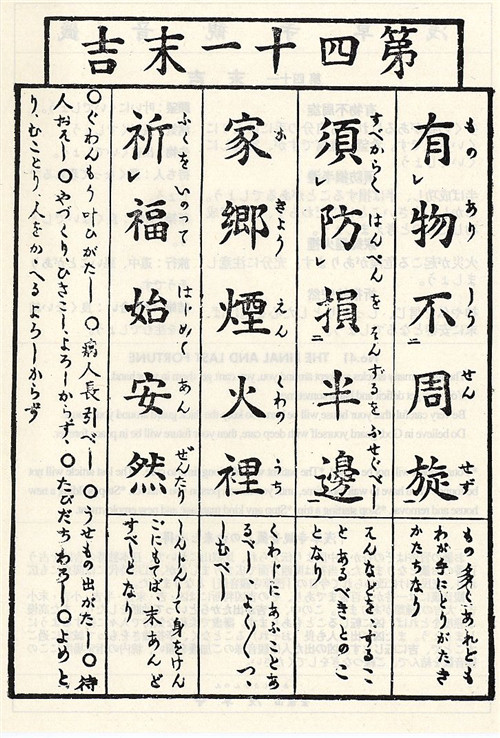 第四十一末吉
有物不周旋
もの あり しう せん せず
もの多くあれども
わが手にとりがたき
かたちなり
須防損半邊
すべからく はんぺんを そんずるを ふせぐべし
そんなどをゝするこ
とあるべきとのこ
となり
家郷煙火裡
か きょう えん くわの うち
くわじにあふことあ
るべし、よくつゝ
しむべし
祈福始安然
ふくをいのつて はじめて あん ぜんたり
しんじんして身をけん
ごにもてば、末あんど
すべしとな
○ぐわんもう叶ひがたし ○病人長引べし ○うせもの出がたし ○待
人おそし ○やづくりひさこしよろしからず、○たびだちわろし ○よめと
り、むことり、人をかゝへるよろしからず